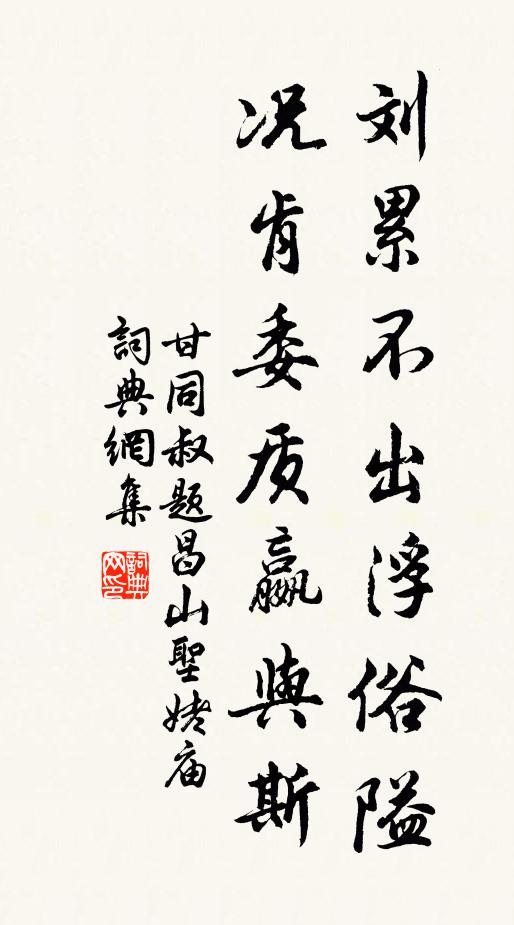 刘累不出浮俗隘
况肯委质嬴與斯
甘同叔题昌山聖姥庙
詞典網集
詞典
网印